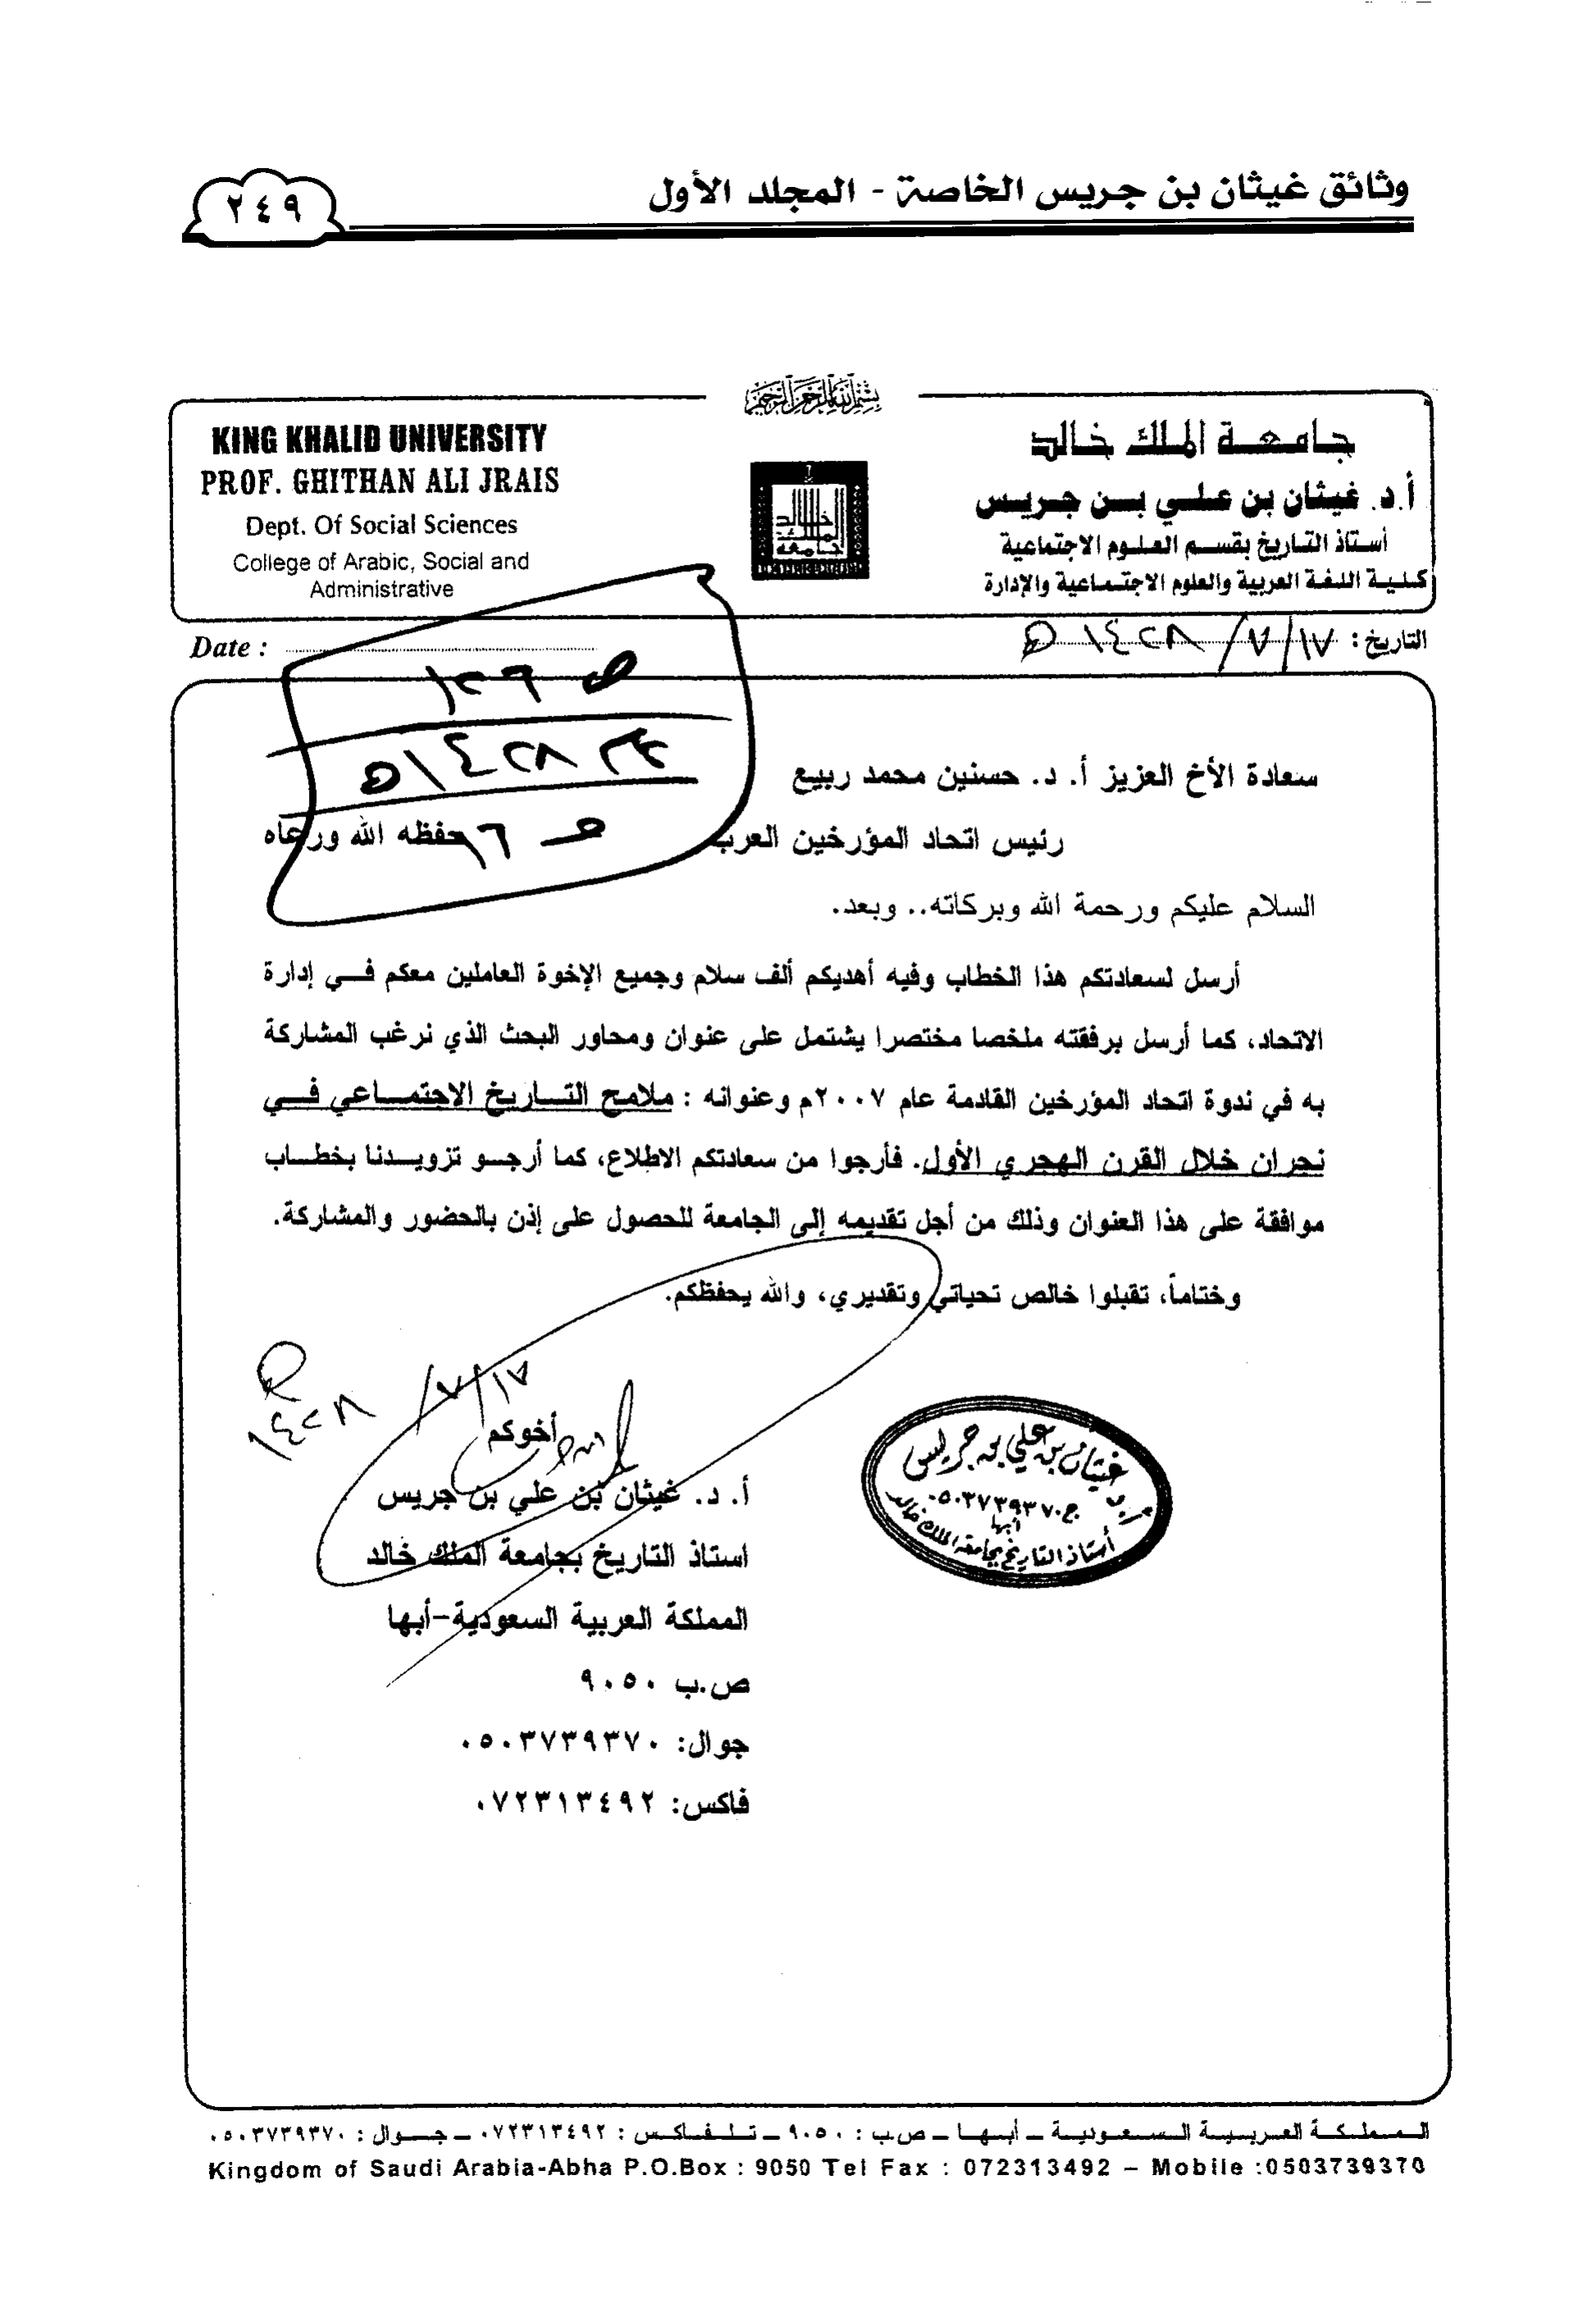 وثائق غيثان بن جريس الخاصة - المجلد الأول
٢٤٩
بسم الله الرحمن الرحيم
جامعة الملك خالد
أ.د. غيثان بن علي بن جريس
أستاذ التاريخ بقسم العلوم الاجتماعية
كلية اللغة العربية والعلوم الاجتماعية والإدارة
KING KHALID UNIVERSITY
PROF. GHITHAN ALI JRAIS
Dept. Of Social Sciences
College of Arabic, Social and
Administrative
خالد
الملك
جامعة
التاريخ : ١٧/٧/١٤٢٨ه
Date :
ص ١٢٦
١٤٢٨ه
ص ١٦
سعادة الأخ العزيز أ. د. حسنين محمد ربيع
رئيس اتحاد المؤرخين العرب حفظه الله ورعاه
السلام عليكم ورحمة الله وبركاته.. وبعد.
أرسل لسعادتكم هذا الخطاب وفيه أهديكم ألف سلام وجميع الإخوة العاملين معكم في إدارة
الاتحاد، كما أرسل برفقته ملخصا مختصرا يشتمل على عنوان ومحاور البحث الذي نرغب المشاركة
به في ندوة اتحاد المؤرخين القادمة عام ٢٠٠٧م وعنوانه : ملامح التاريخ الاجتماعي في
نجران خلال القرن الهجري الأول. فأرجوا من سعادتكم الاطلاع، كما أرجو تزويدنا بخطاب
موافقة على هذا العنوان وذلك من أجل تقديمه إلى الجامعة للحصول على إذن بالحضور والمشاركة.
وختاماً، تقبلوا خالص تحياتي وتقديري، والله يحفظكم.
١٧/٧/١٤٢٨ه
أخوكم
أ. د. غيثان بن علي بن جريس
استاذ التاريخ بجامعة الملك خالد
المملكة العربية السعودية-أبها
ص.ب ٩٠٥٠
جوال: ٠٥٠٣٧٣٩٣٧٠
فاكس: ٠٧٢٣١٣٤٩٢
غيثان بن علي بن جريس
ج ٠٥٠٣٧٣٩٣٧٠
أبها
أستاذ التاريخ بجامعة الملك خالد
المملكة العربية السعودية – أبها – ص.ب : ٩٠٥٠ – تلفاكس : ٠٧٢٣١٣٤٩٢ – جوال : ٠٥٠٣٧٣٩٣٧٠
Kingdom of Saudi Arabia-Abha P.O.Box : 9050 Tel Fax : 072313492 – Mobile :0503739370